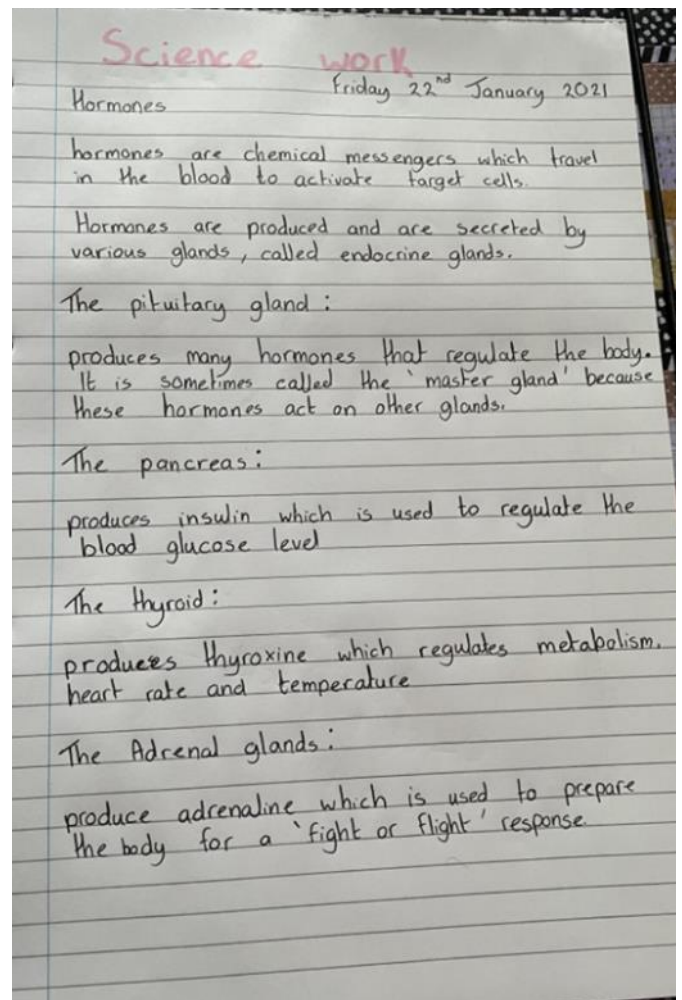 Science work
Friday 22nd January 2021
Hormones
hormones are chemical messengers which travel
in the blood to activate target cells.
Hormones are produced and are secreted by
various glands, called endocrine glands.
The pituitary gland:
produces many hormones that regulate the body.
It is sometimes called the 'master gland' because
these hormones act on other glands.
The pancreas:
produces insulin which is used to regulate the
blood glucose level
The thyroid:
produces thyroxine which regulates metabolism.
heart rate and temperature
The Adrenal glands:
produce adrenaline which is used to prepare
the body for a 'fight or flight' response.